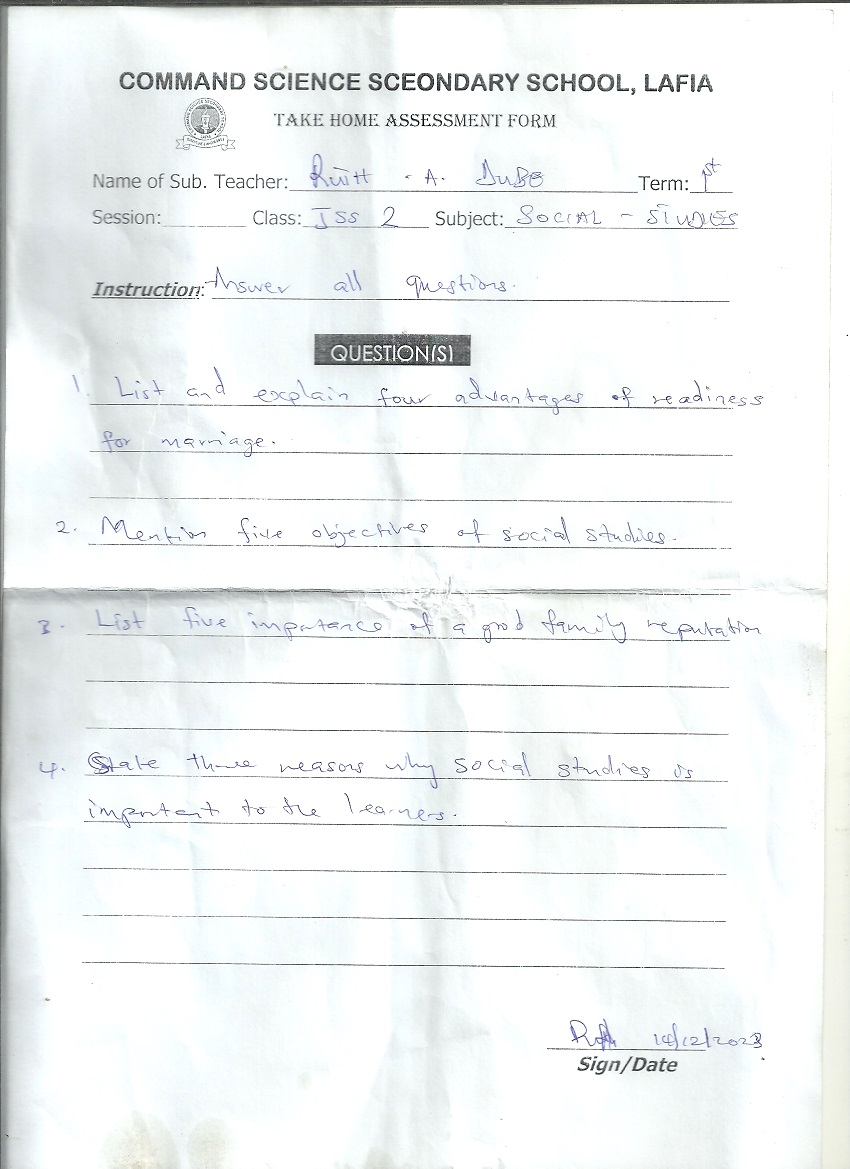 COMMAND SCIENCE SCEONDARY SCHOOL, LAFIA
TAKE HOME ASSESSMENT FORM
Name of Sub. Teacher: Ruth - A. DUBE Term: 1st
Session: Class: JSS 2 Subject: SOCIAL - STUDIES
Instruction: Answer all questions.
QUESTION(S)
1. List and explain four advantages of readiness
for marriage.
2. Mention five objectives of social studies.
3. List five importance of a good family reputation
4. State three reasons why social studies is
important to the learners.
14/12/2023
Sign/Date